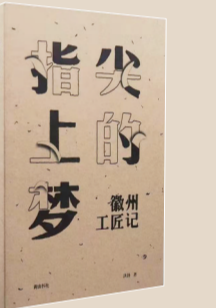 指尖
上的
梦
徽州
工匠记